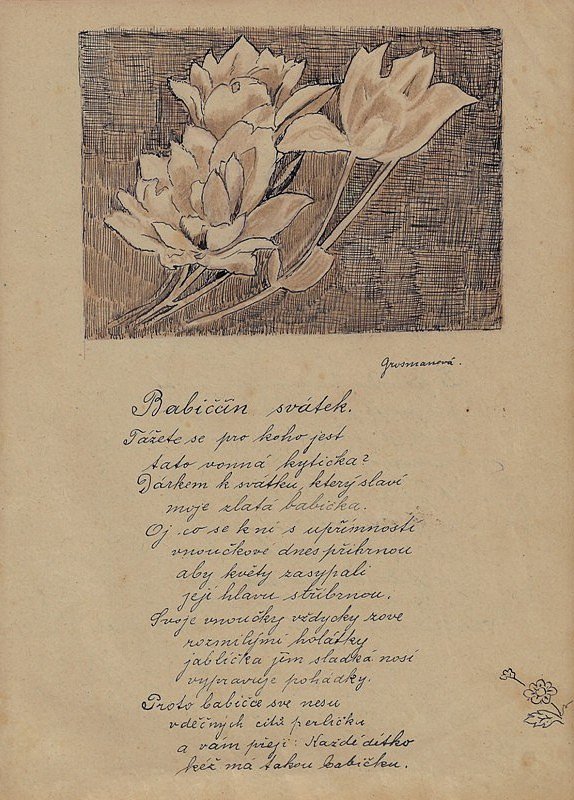 Grosmanová.
Babiččin svátek.
Tážete se pro koho jest
tato vonná kytička?
Dárkem k svátku, který slaví
moje zlatá babička.
Oj co se k ní s upřímností
vnoučkové dnes přihrnou
aby květy zasypali
její hlavu stříbrnou.
Svoje vnoučky vždycky zove
rozmilými holátky
jablíčka jim sladká nosí
vypravuje pohádky.
Proto babičce sve nesu
vděčných citů perličku
a vám přeji: Každé dítko
kéž má takou babičku.